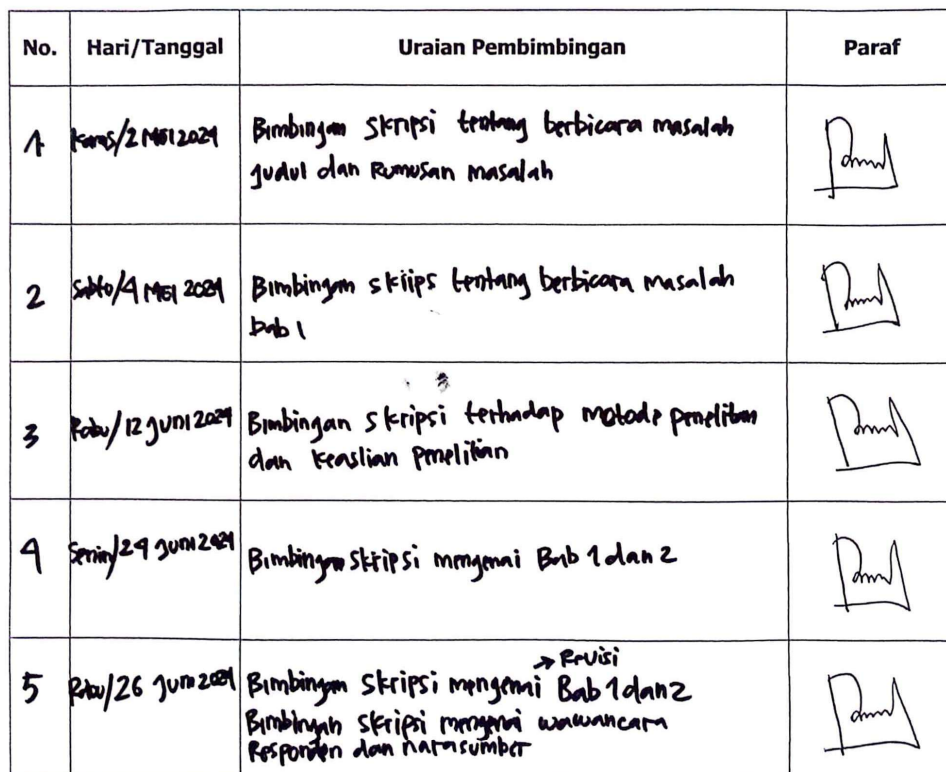 No. Hari/Tanggal Uraian Pembimbingan Paraf
1 Kamis/2 MEI 2024 Bimbingan Skripsi tentang berbicara masalah
judul dan Rumusan masalah
2 Sabto/4 MEI 2024 Bimbingan skiips tentang berbicara masalah
bab 1
3 Rabu/12 JUNI 2024 Bimbingan skripsi terhadap metode penelitian
dan keaslian penelitian
4 Senin/24 JUNI 2024 Bimbingan skripsi mengenai Bab 1 dan 2
→ Revisi
5 Rabu/26 JUNI 2024 Bimbingan skripsi mengenai Bab 1 dan 2
Bimbingan skripsi mengenai wawancara
Responden dan narasumber